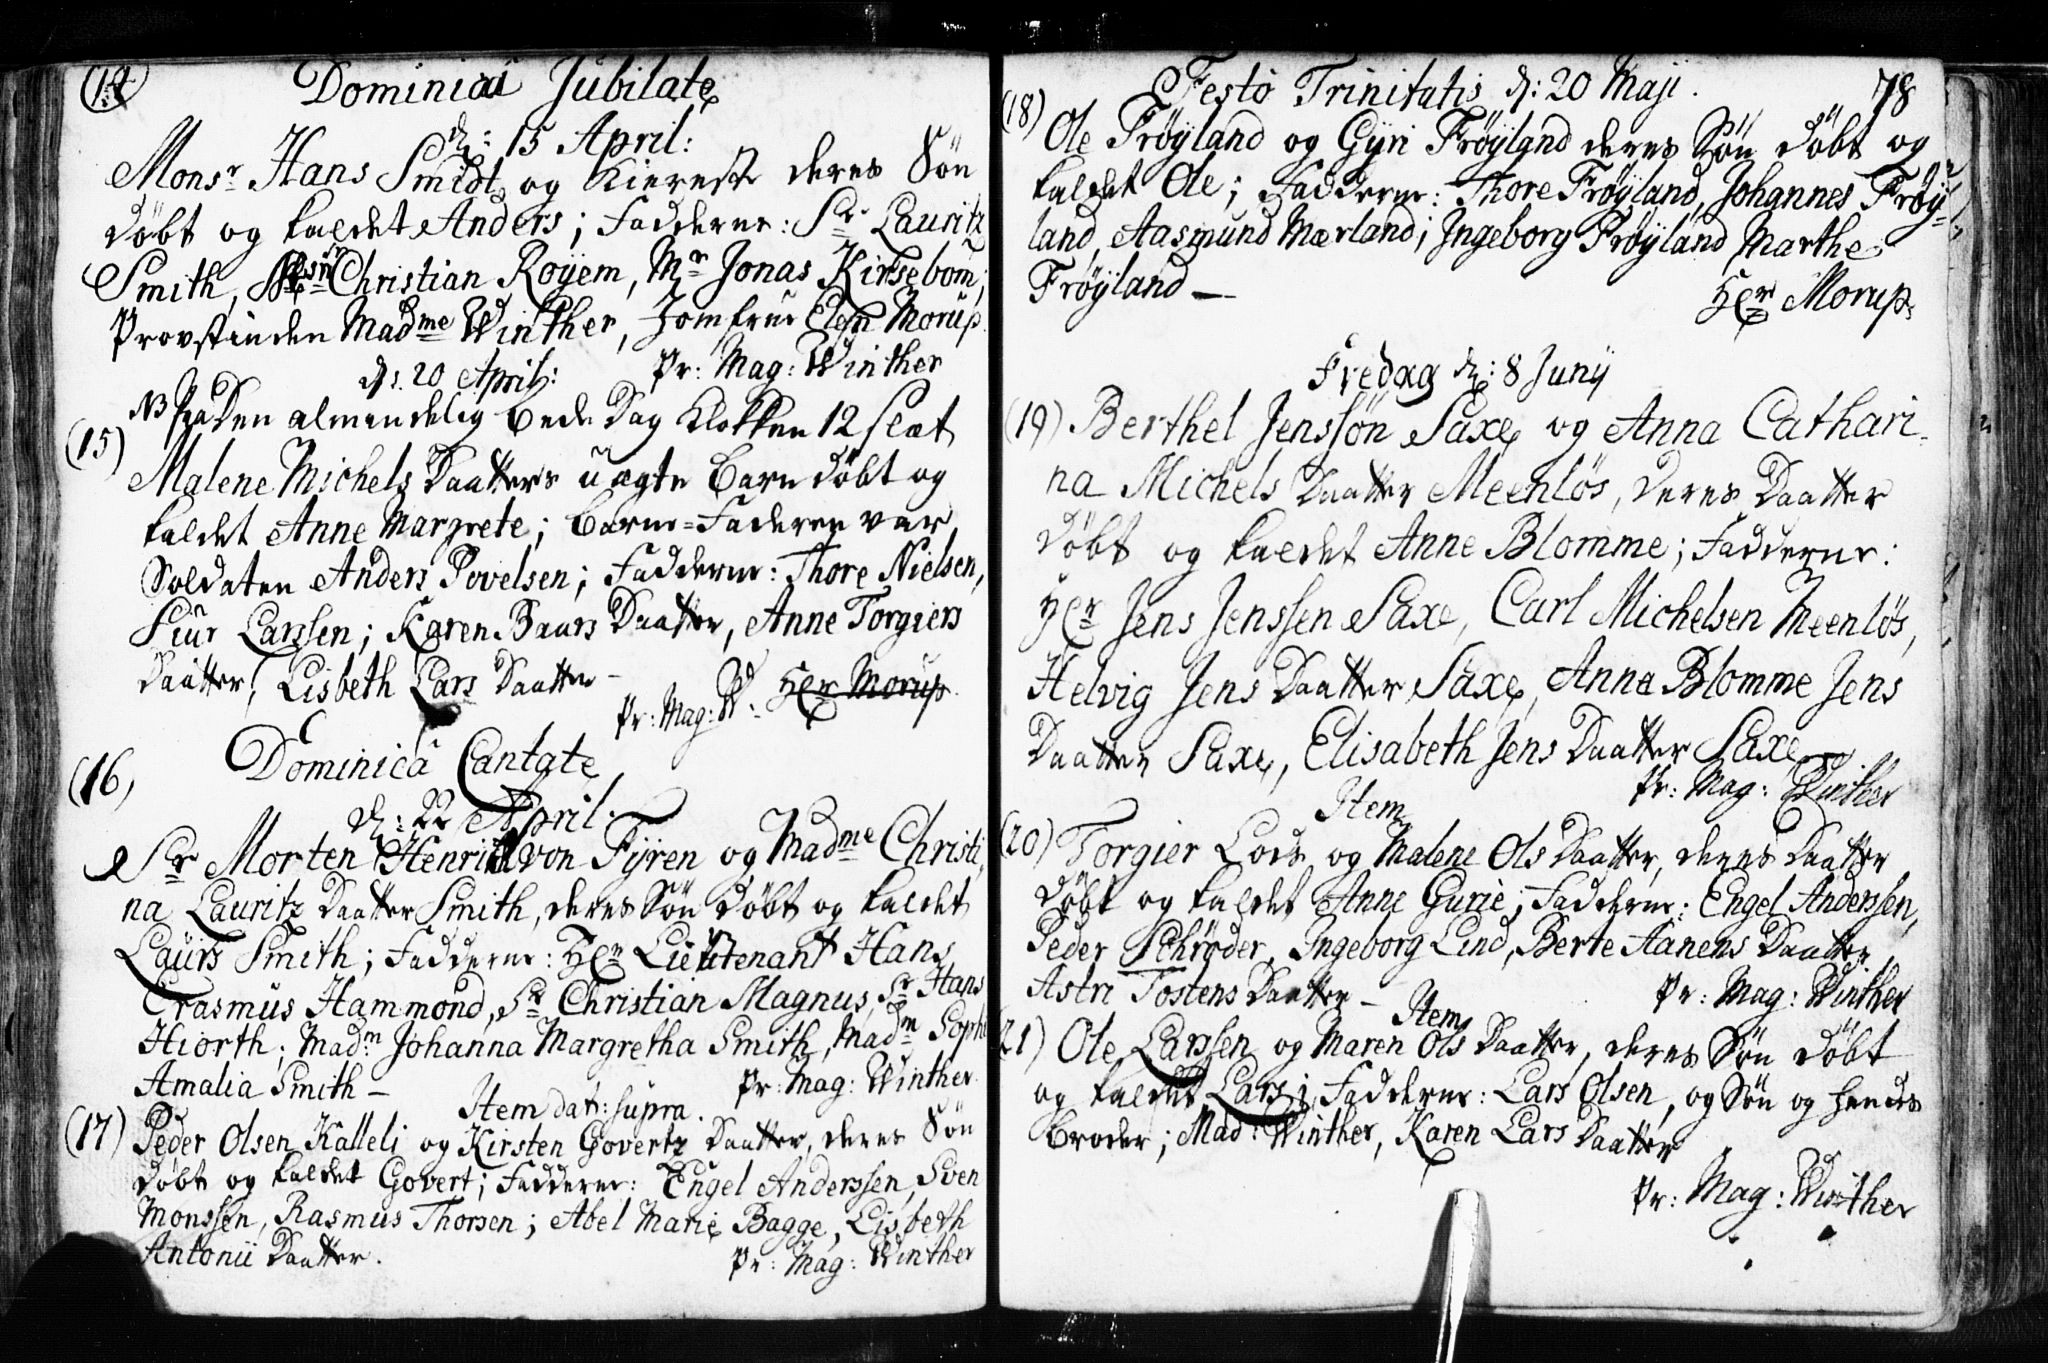 (14) Dominicâ Jubilate
d: 15 April:
Monsr Hans Smidt og Kiereste deres Søn
døbt og kaldet Anders; Fadderne: Sr Lauritz
Smith, Christian Royem, Mr Jonas Kirsebom;
Provstinden Madme Winther, Jomfrue Elen Morup.
Pr: Mag: Winther
d: 20 April:
NB Paa Den almindelig Bede Dag Klokken 12 slæt
(15) Malene Michels Daatters uægte Barn døbt og
kaldet Anne Margrete; Barne-Faderen var
Soldaten Anders Povelsen; Fadderne: Thore Nielsen,
Siur Larssen; Karen Baars Daatter, Anne Torgiers
Daatter, Lisbeth Lars Daatter –
Pr: Mag: W. Her Morup.
(16) Dominicâ Cantate
d: 22 April.
Sr Morten Henrich von Fyren og Madme Christi-
na Lauritz Daatter Smith, deres Søn døbt og kaldet
Laurs Smith; Fadderne: Her Lieutenant Hans
Erasmus Hammond, Sr Christian Magnus, Sr Hans
Hiorth; Madm Johanna Margretha Smith, Madm Soph
Amalia Smith – Pr: Mag: Winther.
Item dat: supra.
(17) Peder Olsen Kalleli og Kirsten Govertz Daatter, deres Søn
døbt og kaldet Govert; Fadderne: Engel Anderssen, Sven
Monssen, Rasmus Thorsen; Abel Marie Bagge, Lisbeth
Antonii Daatter. Pr: Mag: Winther
Festo Trinitatis d: 20 Maji. 78
(18) Ole Frøyland og Gyri Frøyland deres Søn døbt og
kaldet Ole; Fadderne: Thore Frøyland, Johannes Frøy-
land, Aasmund Mærland; Ingeborg Frøyland, Marthe
Frøyland – Her Morup.
Fredag d: 8 Junij
(19) Berthel Jenssøn Saxe og Anna Cathari-
na Michels Daatter Meenløs, deres Daatter
døbt og kaldet Anne Blomme; Fadderne:
Her Jens Jenssen Saxe, Carl Michelsen Meenløs,
Helvig Jens Daatter Saxe, Anna Blomme Jens
Daatter Saxe, Elisabeth Jens Daatter Saxe
Pr: Mag: Winther
Item
(20) Torgier Lods og Malene Ols Daatter, deres Daatter
døbt og kaldet Anne Gurie; Fadderne: Engel Anderssen,
Peder Schrøder, Ingeborg Lind, Berte Aanens Daatter
Astri Tostens Daatter – Pr: Mag: Winther
Item
21) Ole Larssen og Maren Ols Daatter, deres Søn døbt
og kaldet Lars; Fadderne: Lars Olsen, og Søn og hendes
Broder; Mad: Winther, Karen Lars Daatter
Pr: Mag: Winther